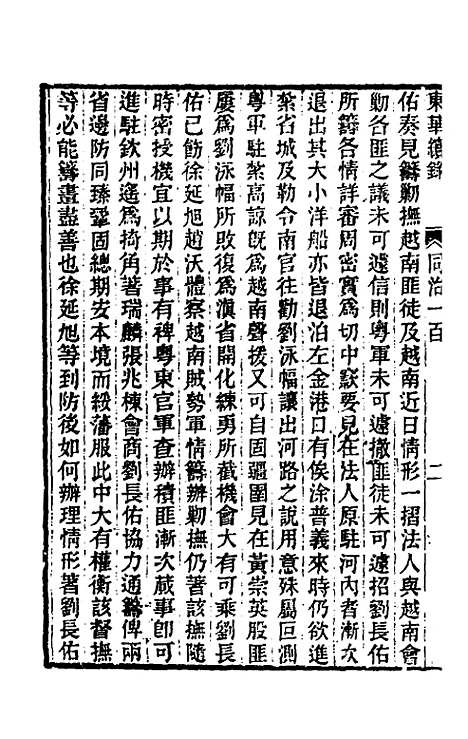 東華續錄 同治一百 二
佑奏見籌勦撫越南匪徒及越南近日情形一摺法人與越南會
勦各匪之議未可遽信則粵軍未可遽撤匪徒未可遽招劉長佑
所籌各情詳審周密實爲切中竅要見在法人原駐河內者漸次
退出其大小洋船亦皆退泊左金港口有俟涂普義來時仍欲進
紮省城及勒令南官往勸劉泳幅讓出河路之說用意殊屬叵測
粵軍駐紮高諒既爲越南聲援又可自固疆圉見在黃崇英股匪
屢爲劉泳幅所敗復爲滇省開化練勇所截機會大有可乘劉長
佑已飭徐延旭趙沃體察越南賊勢軍情籌辦勦撫仍著該撫隨
時密授機宜以期於事有裨粵東官軍查辦積匪漸次蕆事卽可
進駐欽州遙爲掎角著瑞麟張兆棟會商劉長佑協力通籌俾兩
省邊防同臻鞏固總期安本境而綏藩服此中大有權衡該督撫
等必能籌畫盡善也徐延旭等到防後如何辦理情形著劉長佑